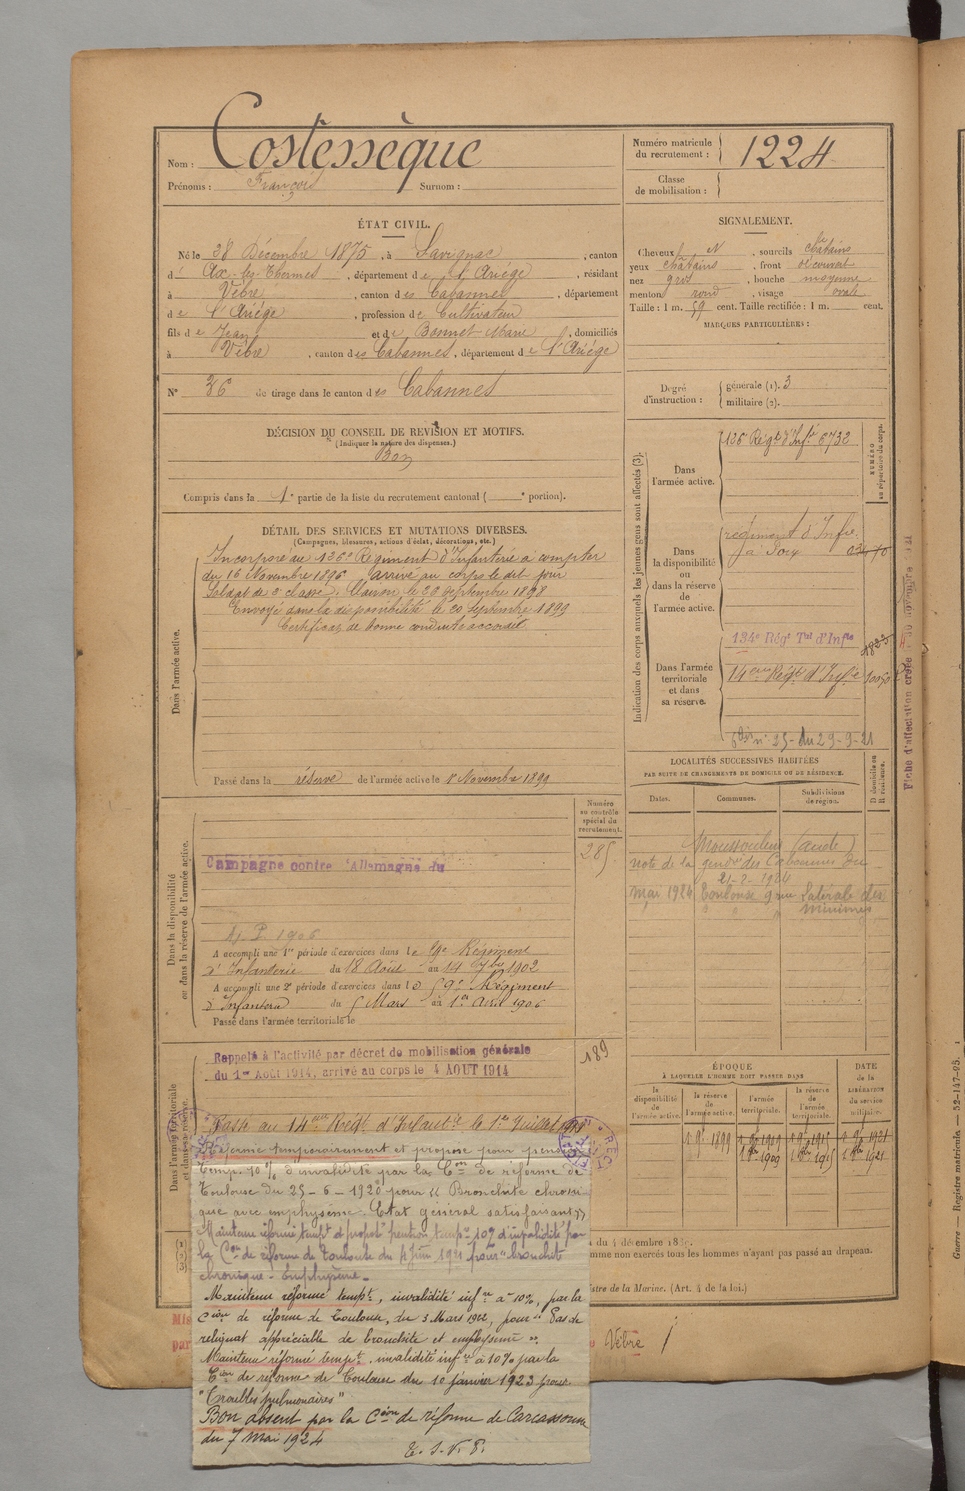 Nom : Costessèque
Prénoms : François Surnom :
Numéro matricule du recrutement : 1224
Classe de mobilisation :
ÉTAT CIVIL.
Né le 28 Décembre 1875, à Savignac, canton
d' Ax-les-Thermes, département de l'Ariège, résidant
à Vèbre, canton des Cabannes, département
de l'Ariège, profession de Cultivateur
fils de Jean et de Bonnet Marie, domiciliés
à Vèbre, canton des Cabannes, département de l'Ariège
N° 36 de tirage dans le canton des Cabannes
SIGNALEMENT.
Cheveux N, sourcils châtains
yeux châtains, front découvert
nez gros, bouche moyenne
menton rond, visage ovale
Taille : 1 m. 59 cent. Taille rectifiée : 1 m. cent.
MARQUES PARTICULIÈRES :
Degré d'instruction : générale (1). 3
militaire (2).
DÉCISION DU CONSEIL DE REVISION ET MOTIFS.
(Indiquer la nature des dispenses.)
Bon
Compris dans la 1e partie de la liste du recrutement cantonal ( e portion).
DÉTAIL DES SERVICES ET MUTATIONS DIVERSES.
(Campagnes, blessures, actions d'éclat, décorations, etc.)
Dans l'armée active.
Incorporé au 126e Régiment d'Infanterie à compter
du 16 Novembre 1896 arrivé au corps le dit jour
Soldat de 2e classe. Clairon le 20 septembre 1898
Envoyé dans la disponibilité le 20 septembre 1899
Certificat de bonne conduite accordé
Passé dans la réserve de l'armée active le 1er Novembre 1899
Indication des corps auxquels les jeunes gens sont affectés (3).
NUMÉRO au répertoire du corps.
Dans l'armée active.
126 Régt d'Inft 6732
Dans la disponibilité ou dans la réserve de l'armée active.
régiment d'Infie
Dans l'armée territoriale et dans sa réserve.
134e Régt Tal d'Infie
14eme Régt d'Infie
n° 25 - du 29-9-21
Fiche d'affectation créée
LOCALITÉS SUCCESSIVES HABITÉES
PAR SUITE DE CHANGEMENTS DE DOMICILE OU DE RÉSIDENCE.
Dates. Communes. Subdivisions de région. D domicile ou R résidence.
Moussoulens (aude)
note de la gendie des Cabannes du
21-2-1924
Mai 1924 Toulouse 9 rue Latérale des
Minimes
Numéro au contrôle spécial du recrutement.
285
Dans la disponibilité ou dans la réserve de l'armée active.
Campagne contre l'Allemagne du
A accompli une 1re période d'exercices dans le 59e Régiment
d'Infanterie du 18 Août au 14 7bre 1902
A accompli une 2e période d'exercices dans le 59e Régiment
d'Infanterie du 5 Mars au 1er Avril 1906
Passé dans l'armée territoriale le
Dans l'armée territoriale et dans sa réserve.
Rappelé à l'activité par décret de mobilisation générale
du 1er Août 1914, arrivé au corps le 4 AOUT 1914
189
Passé au 14eme Régt d'Infanterie le 1er Juillet
Réformé temporairement et proposé pour pension
temp. 10% d'invalidité par la Con de réforme de
Toulouse du 25-6-1920 pour "Bronchite chroni
que avec emphysème. Etat général satisfaisant"
Maintenu réformé tempt et proposé pension tempre 10% d'invalidité par
la Con de réforme de Toulouse du Juin 1921 pour "bronchite
chronique - Emphysème -
Maintenu réformé tempt, invalidité infre à 10%, par la
Cion de réforme de Toulouse, du 3 Mars 1922, pour "Pas de
reliquat appréciable de bronchite et emphysème".
Maintenu réformé tempt, invalidité infre à 10% par la
Cion de réforme de Toulouse du 10 janvier 1923 pour
"Troubles pulmonaires"
Bon absent par la Cion de réforme de Carcassonne
du 7 Mai 1924
T. S. V. P.
ÉPOQUE
À LAQUELLE L'HOMME DOIT PASSER DANS
DATE de la LIBÉRATION du service militaire.
la disponibilité de l'armée active. la réserve de l'armée active. l'armée territoriale. la réserve de l'armée territoriale.
1 9e 1899
comme non exercés tous les hommes n'ayant pas passé au drapeau.
istre de la Marine. (Art. 4 de la loi.)
Vèbre
Guerre — Registre matricule — 52-147-95.